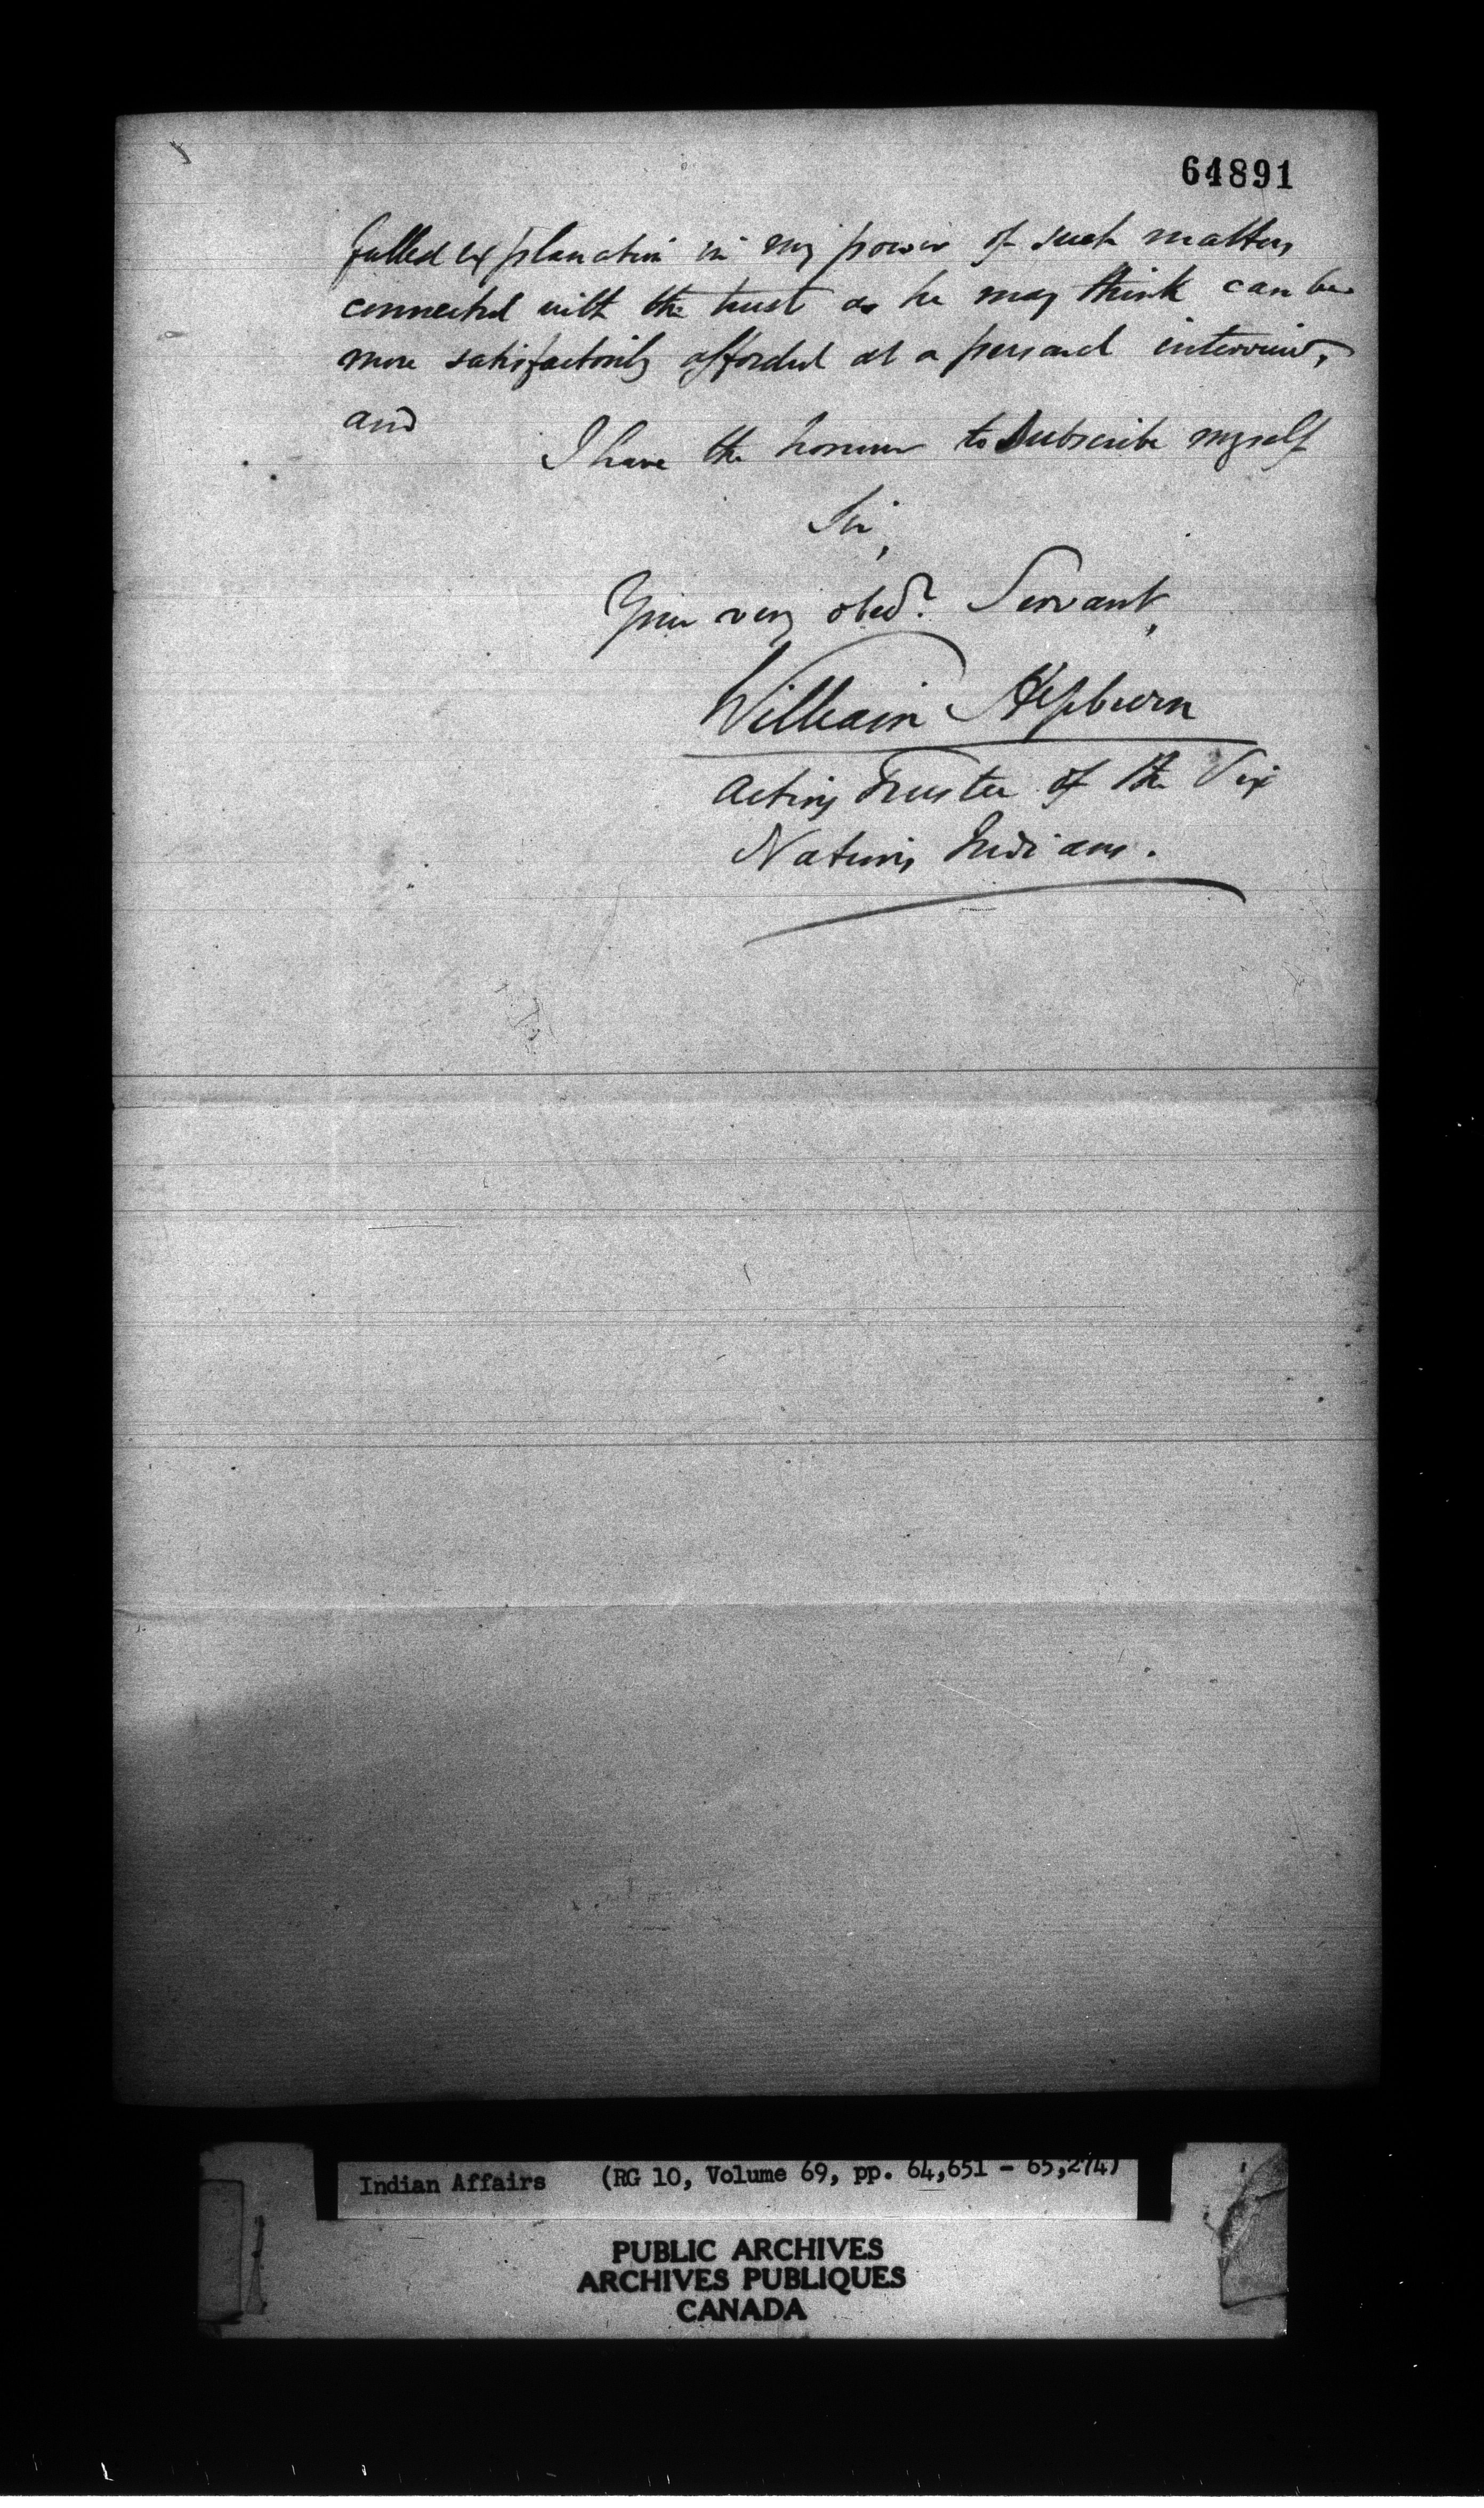 64891
fullest explanation in my power of such matters
connected with the trust as he may think can be
more satisfactorily afforded at a personal interview,
and
I have the honour to subscribe myself
Sir,
Your very obedt. Servant,
William Hepburn
Acting Trustee of the Six
Nations Indians.
Indian Affairs (RG 10, Volume 69, pp. 64,651 - 65,274)
PUBLIC ARCHIVES
ARCHIVES PUBLIQUES
CANADA